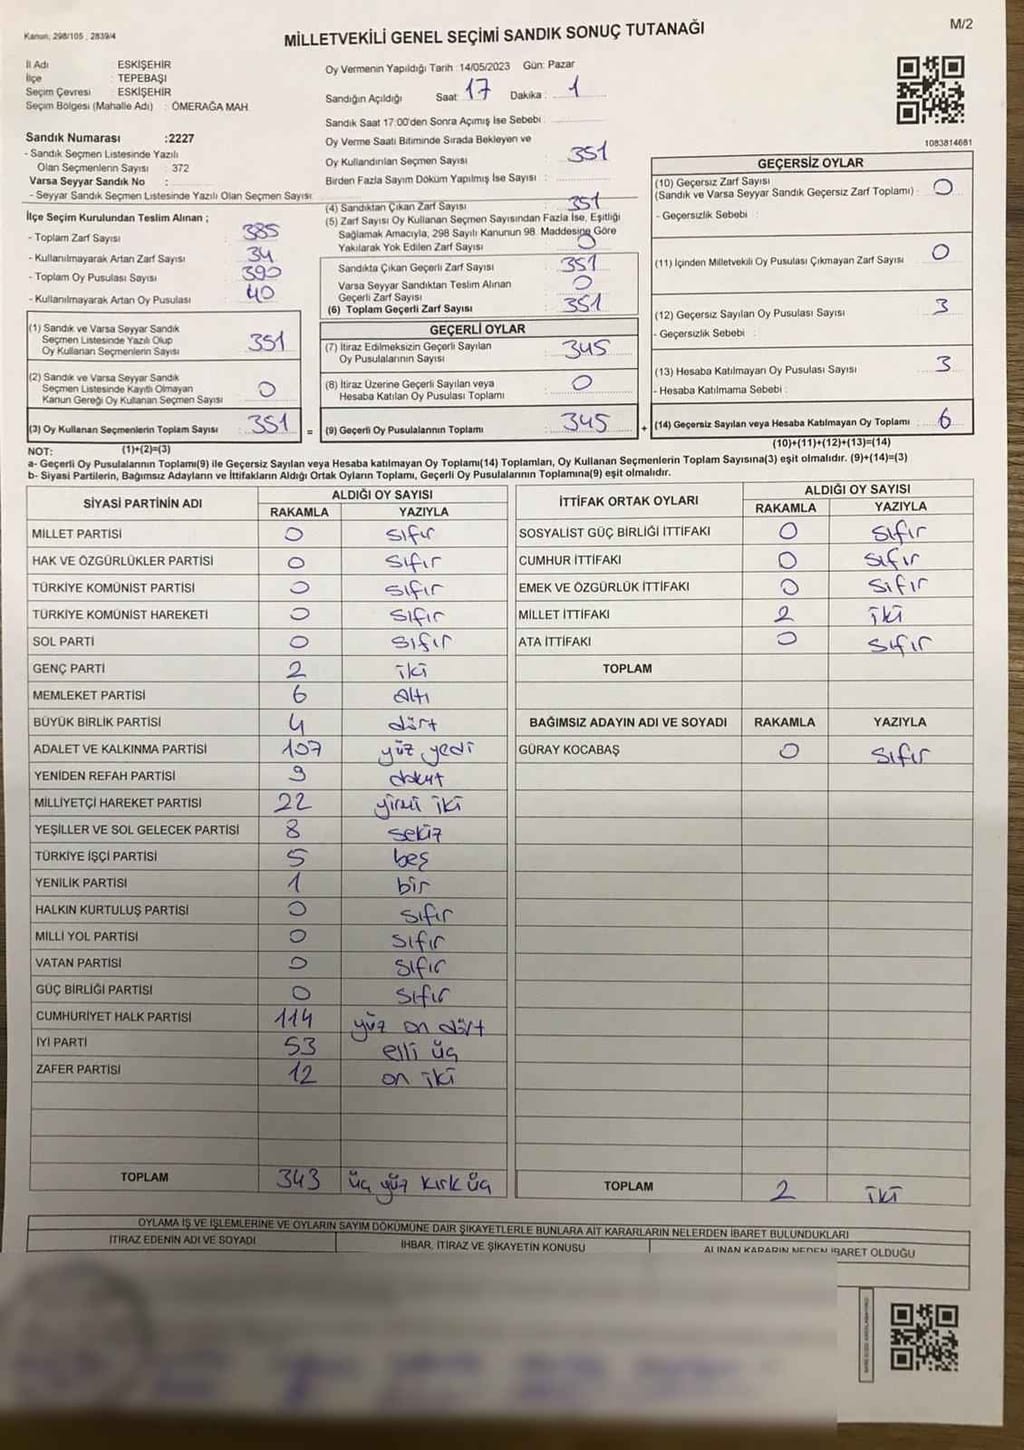 Kanun, 298/105 , 2839/4
MİLLETVEKİLİ GENEL SEÇİMİ SANDIK SONUÇ TUTANAĞI
M/2
İl Adı ESKİŞEHİR
İlçe : TEPEBAŞI
Seçim Çevresi : ESKİŞEHİR
Seçim Bölgesi (Mahalle Adı) : ÖMERAĞA MAH.
Sandık Numarası :2227
- Sandık Seçmen Listesinde Yazılı
Olan Seçmenlerin Sayısı : 372
Varsa Seyyar Sandık No :
- Seyyar Sandık Seçmen Listesinde Yazılı Olan Seçmen Sayısı:
Oy Vermenin Yapıldığı Tarih :14/05/2023 Gün: Pazar
Sandığın Açıldığı Saat: 17 Dakika : 1
Sandık Saat 17:00'den Sonra Açımış İse Sebebi :
Oy Verme Saati Bitiminde Sırada Bekleyen ve
Oy Kullandırılan Seçmen Sayısı : 351
Birden Fazla Sayım Döküm Yapılmış İse Sayısı :
1083814681
İlçe Seçim Kurulundan Teslim Alınan ;
- Toplam Zarf Sayısı : 385
- Kullanılmayarak Artan Zarf Sayısı : 34
- Toplam Oy Pusulası Sayısı : 390
- Kullanılmayarak Artan Oy Pusulası : 40
(1) Sandık ve Varsa Seyyar Sandık
Seçmen Listesinde Yazılı Olup
Oy Kullanan Seçmenlerin Sayısı 351
(2) Sandık ve Varsa Seyyar Sandık
Seçmen Listesinde Kayıtlı Olmayan
Kanun Gereği Oy Kullanan Seçmen Sayısı 0
(3) Oy Kullanan Seçmenlerin Toplam Sayısı : 351 =
(1)+(2)=(3)
(4) Sandıktan Çıkan Zarf Sayısı : 351
(5) Zarf Sayısı Oy Kullanan Seçmen Sayısından Fazla İse, Eşitliği
Sağlamak Amacıyla, 298 Sayılı Kanunun 98. Maddesine Göre
Yakılarak Yok Edilen Zarf Sayısı : 0
Sandıkta Çıkan Geçerli Zarf Sayısı : 351
Varsa Seyyar Sandıktan Teslim Alınan
Geçerli Zarf Sayısı : 0
(6) Toplam Geçerli Zarf Sayısı : 351
GEÇERLİ OYLAR
(7) İtiraz Edilmeksizin Geçerli Sayılan
Oy Pusulalarının Sayısı : 345
(8) İtiraz Üzerine Geçerli Sayılan veya
Hesaba Katılan Oy Pusulası Toplamı : 0
(9) Geçerli Oy Pusulalarının Toplamı : 345 +
GEÇERSİZ OYLAR
(10) Geçersiz Zarf Sayısı
(Sandık ve Varsa Seyyar Sandık Geçersiz Zarf Toplamı) : 0
- Geçersizlik Sebebi :
(11) İçinden Milletvekili Oy Pusulası Çıkmayan Zarf Sayısı : 0
(12) Geçersiz Sayılan Oy Pusulası Sayısı : 3
- Geçersizlik Sebebi :
(13) Hesaba Katılmayan Oy Pusulası Sayısı : 3
- Hesaba Katılmama Sebebi :
(14) Geçersiz Sayılan veya Hesaba Katılmayan Oy Toplamı : 6
(10)+(11)+(12)+(13)=(14)
NOT:
a- Geçerli Oy Pusulalarının Toplamı(9) ile Geçersiz Sayılan veya Hesaba katılmayan Oy Toplamı(14) Toplamları, Oy Kullanan Seçmenlerin Toplam Sayısına(3) eşit olmalıdır. (9)+(14)=(3)
b- Siyasi Partilerin, Bağımsız Adayların ve İttifakların Aldığı Ortak Oyların Toplamı, Geçerli Oy Pusulalarının Toplamına(9) eşit olmalıdır.
SİYASİ PARTİNİN ADI ALDIĞI OY SAYISI
RAKAMLA YAZIYLA
MİLLET PARTİSİ 0 sıfır
HAK VE ÖZGÜRLÜKLER PARTİSİ 0 sıfır
TÜRKİYE KOMÜNİST PARTİSİ 0 sıfır
TÜRKİYE KOMÜNİST HAREKETİ 0 sıfır
SOL PARTİ 0 sıfır
GENÇ PARTİ 2 iki
MEMLEKET PARTİSİ 6 Altı
BÜYÜK BİRLİK PARTİSİ 4 dört
ADALET VE KALKINMA PARTİSİ 107 yüz yedi
YENİDEN REFAH PARTİSİ 9 dokuz
MİLLİYETÇİ HAREKET PARTİSİ 22 yirmi iki
YEŞİLLER VE SOL GELECEK PARTİSİ 8 sekiz
TÜRKİYE İŞÇİ PARTİSİ 5 beş
YENİLİK PARTİSİ 1 bir
HALKIN KURTULUŞ PARTİSİ 0 sıfır
MİLLİ YOL PARTİSİ 0 sıfır
VATAN PARTİSİ 0 sıfır
GÜÇ BİRLİĞİ PARTİSİ 0 sıfır
CUMHURİYET HALK PARTİSİ 114 yüz on dört
İYİ PARTİ 53 elli üç
ZAFER PARTİSİ 12 on iki
TOPLAM 343 üç yüz kırk üç
İTTİFAK ORTAK OYLARI ALDIĞI OY SAYISI
RAKAMLA YAZIYLA
SOSYALİST GÜÇ BİRLİĞİ İTTİFAKI 0 sıfır
CUMHUR İTTİFAKI 0 sıfır
EMEK VE ÖZGÜRLÜK İTTİFAKI 0 sıfır
MİLLET İTTİFAKI 2 iki
ATA İTTİFAKI 0 sıfır
TOPLAM
BAĞIMSIZ ADAYIN ADI VE SOYADI RAKAMLA YAZIYLA
GÜRAY KOCABAŞ 0 sıfır
TOPLAM 2 iki
OYLAMA İŞ VE İŞLEMLERİNE VE OYLARIN SAYIM DÖKÜMÜNE DAİR ŞİKAYETLERLE BUNLARA AİT KARARLARIN NELERDEN İBARET BULUNDUKLARI
İTİRAZ EDENİN ADI VE SOYADI İHBAR, İTİRAZ VE ŞİKAYETİN KONUSU ALINAN KARARIN NEDEN İBARET OLDUĞU